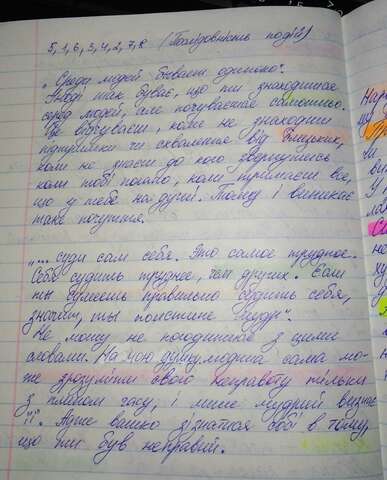 5, 1, 6, 3, 4, 2, 7, 8 (Послідовність подій)
„Среди людей бывает одиноко".
Іноді так буває, що ти знаходишся
серед людей, але почуваєшся самотньо.
Це відчуваєш, коли не знаходиш
підтримки чи схвалення від близьких,
коли не знаєш до кого звернутись
коли тобі погано, коли тримаєш все,
що у тебе на душі. Тому і виникає
таке почуття.
„... суди сам себя. Это самое трудное.
Себя судить труднее, чем других. Если
ты сумеешь правильно судить себя,
значит, ты поистине мудр".
Не можу не погодитися з цими
словами. На мою думку, людина сама мо-
же зрозуміти свою неправоту тільки
з плином часу, і лише мудрий визнає
її. Адже важко зізнатися собі в тому,
що ти був неправий.